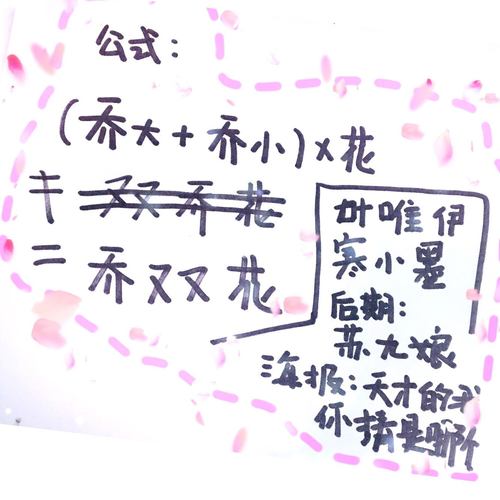 公式:
(乔大+乔小)×花
≠ 双乔花
= 乔双花
叶唯伊
寒小墨
后期:
苏九娘
海报:天才的我
你猜是哪个